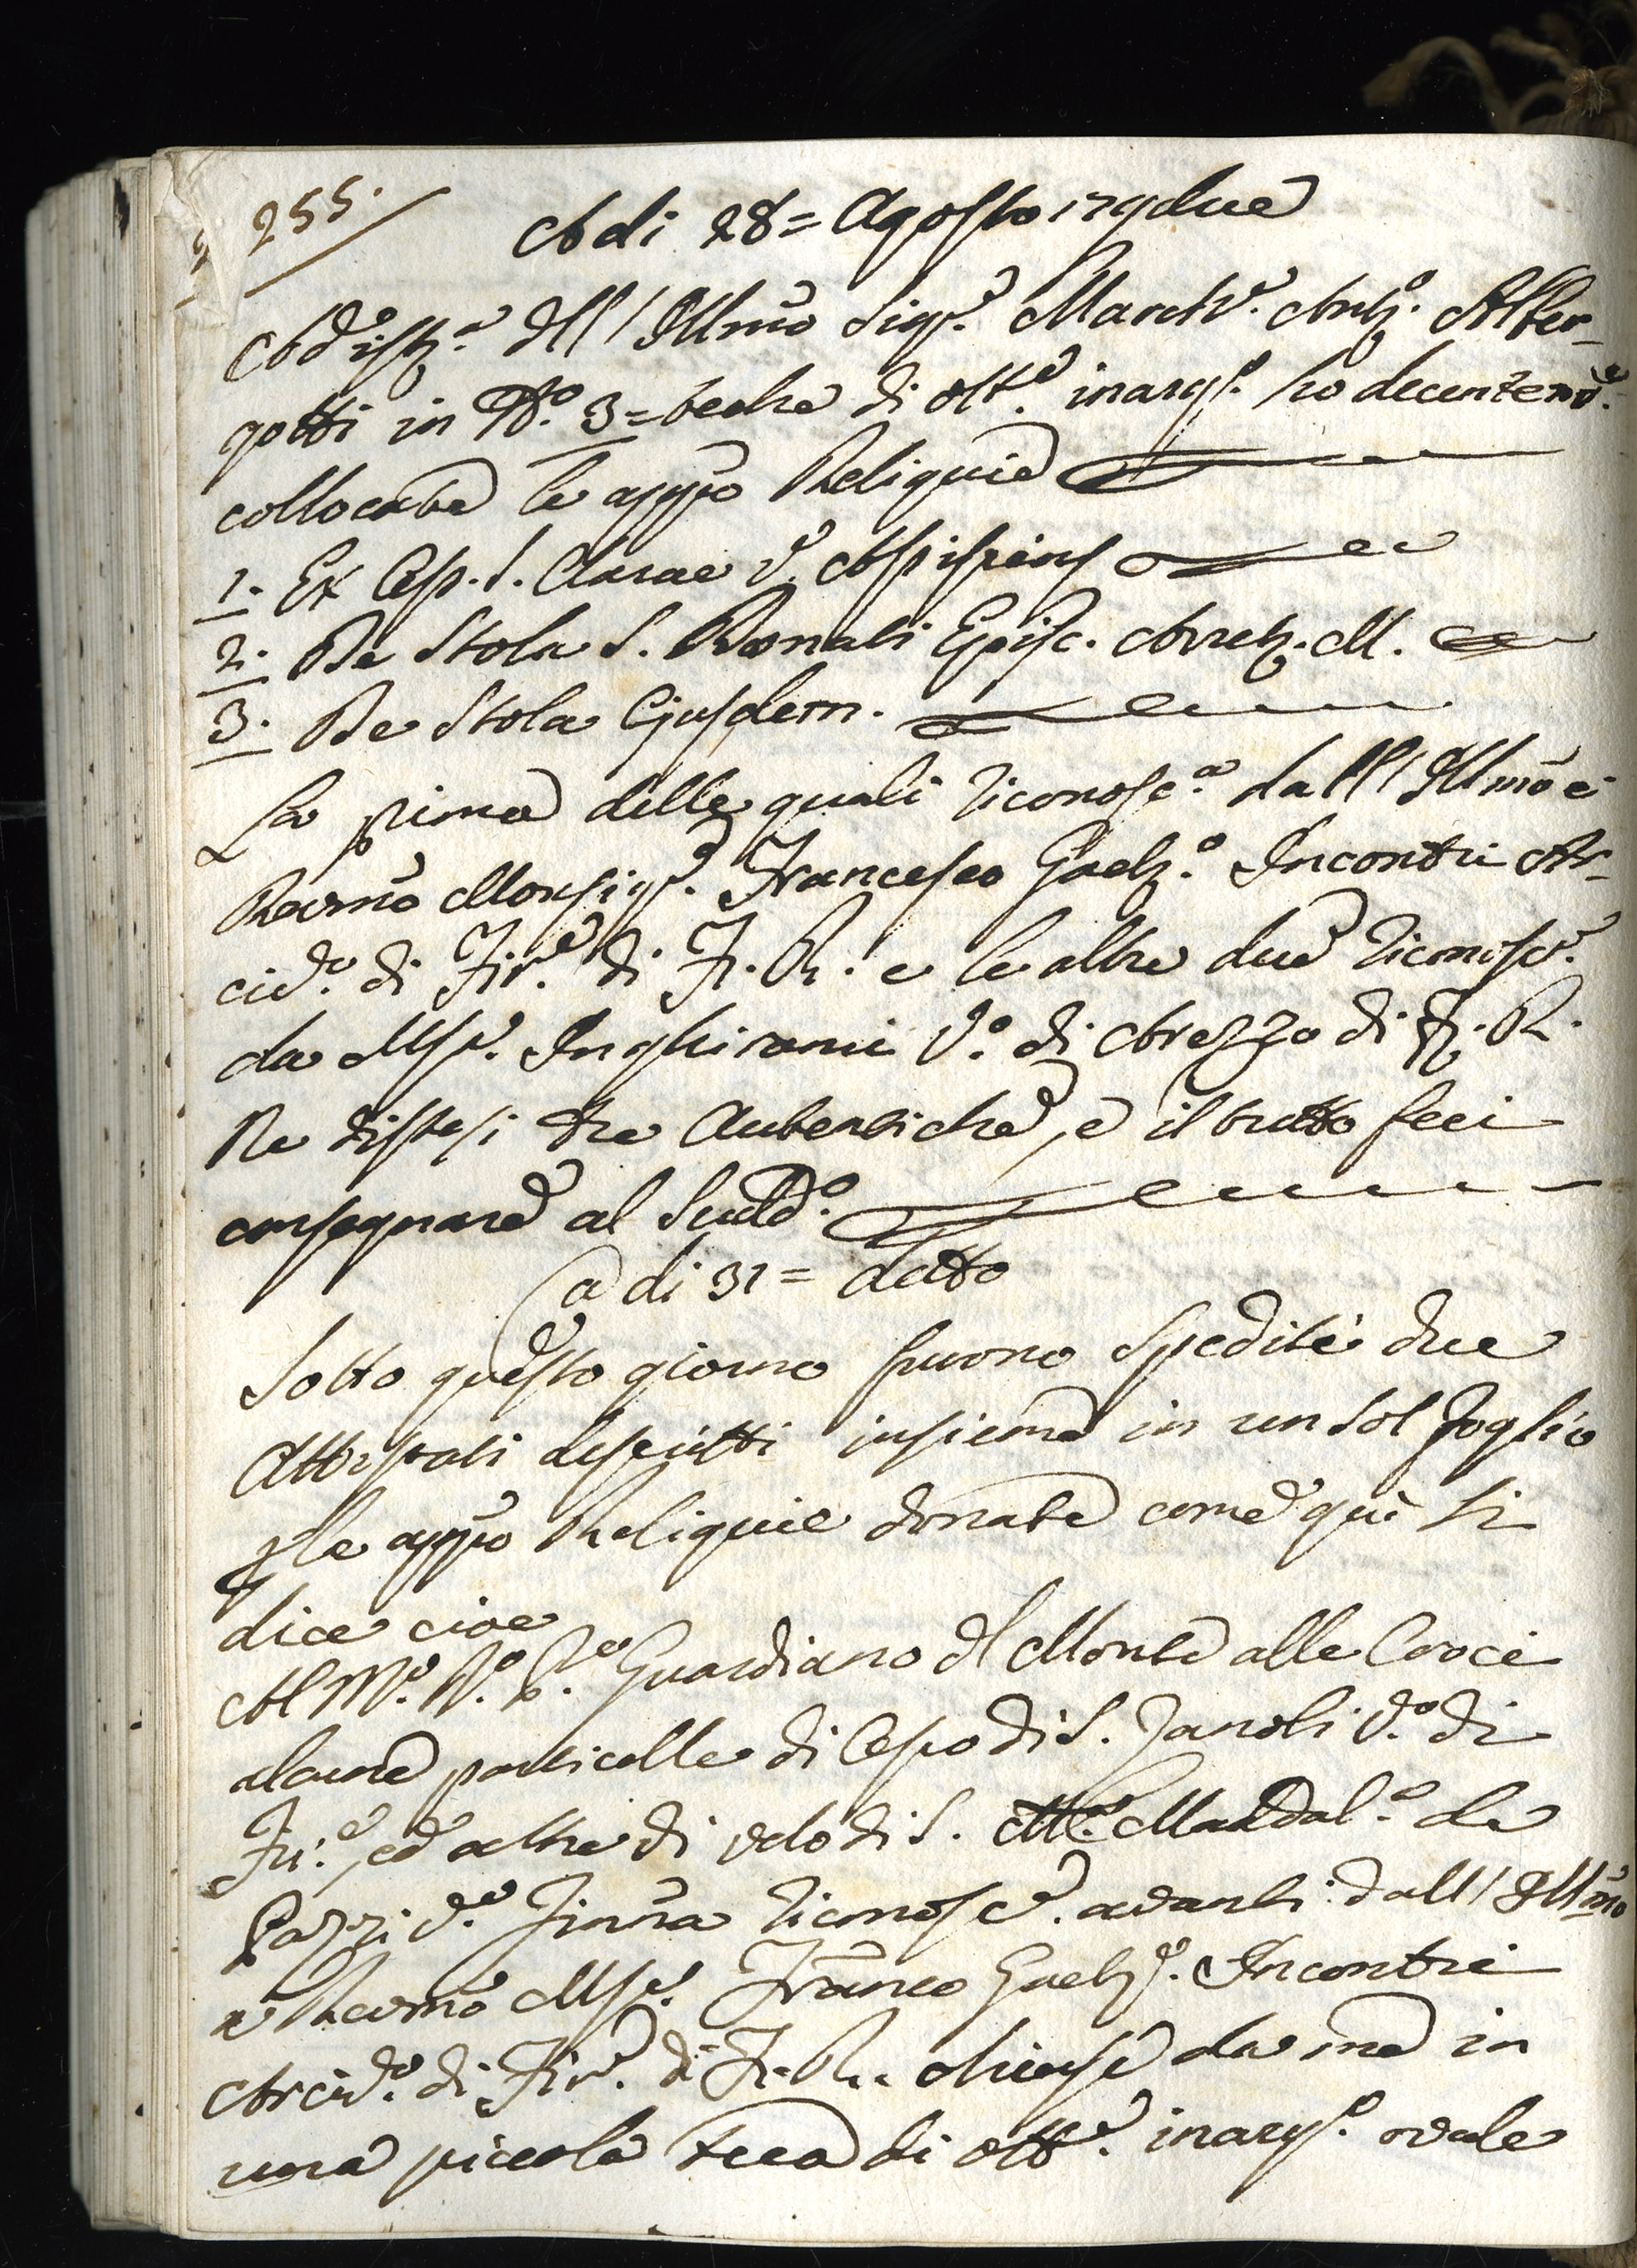 255.
A di 28 = Agosto 179due
Ad istz.ª dell'Illmo Sigr.e March.e Antº. Alber-
gotti in Nº. 3 = teche di ott.e inarg.to ho decentem.e
collocate le appº Reliquie
1. Ex Cap. S. Clarae V. Assisiens
2. De Stola S. Donati Episc. Aretz. M.
3. De Stola Ejusdem.
La prima delle quali riconosc.ª dall'Illmo e
Revmo Monsigr.e Francesco Gaetº. Incontri Ar-
civº. di Fir.e di F. R. e le altre due riconosc.e
da Msr. Inghirami Vº. di Arezzo di F. R.
Ne distesi tre Autentiche, e il tutto feci
consegnare al Suddº.
a di 31 = detto
Sotto questo giorno furono spedite due
Attestati descritti insieme in un sol foglio
p le appº Reliquie donate come qui si
dice cioe
Al Mº. Rº. Pre Guardiano dl Monte alle Croci
alcune particelle di Capo di S. Zanobi Vº. di
Fir.e, ed altre di velo di S. Mª. Maddal.ª de
Pazzi Ve. Finña riconosc.e avanti dall'Illmo
e Revmo Msr. Franco Gaetº. Incontri
Arcivº. di Fir.e di F. R. chiuse da me in
una piccola teca di ott.e inarg.to ovale